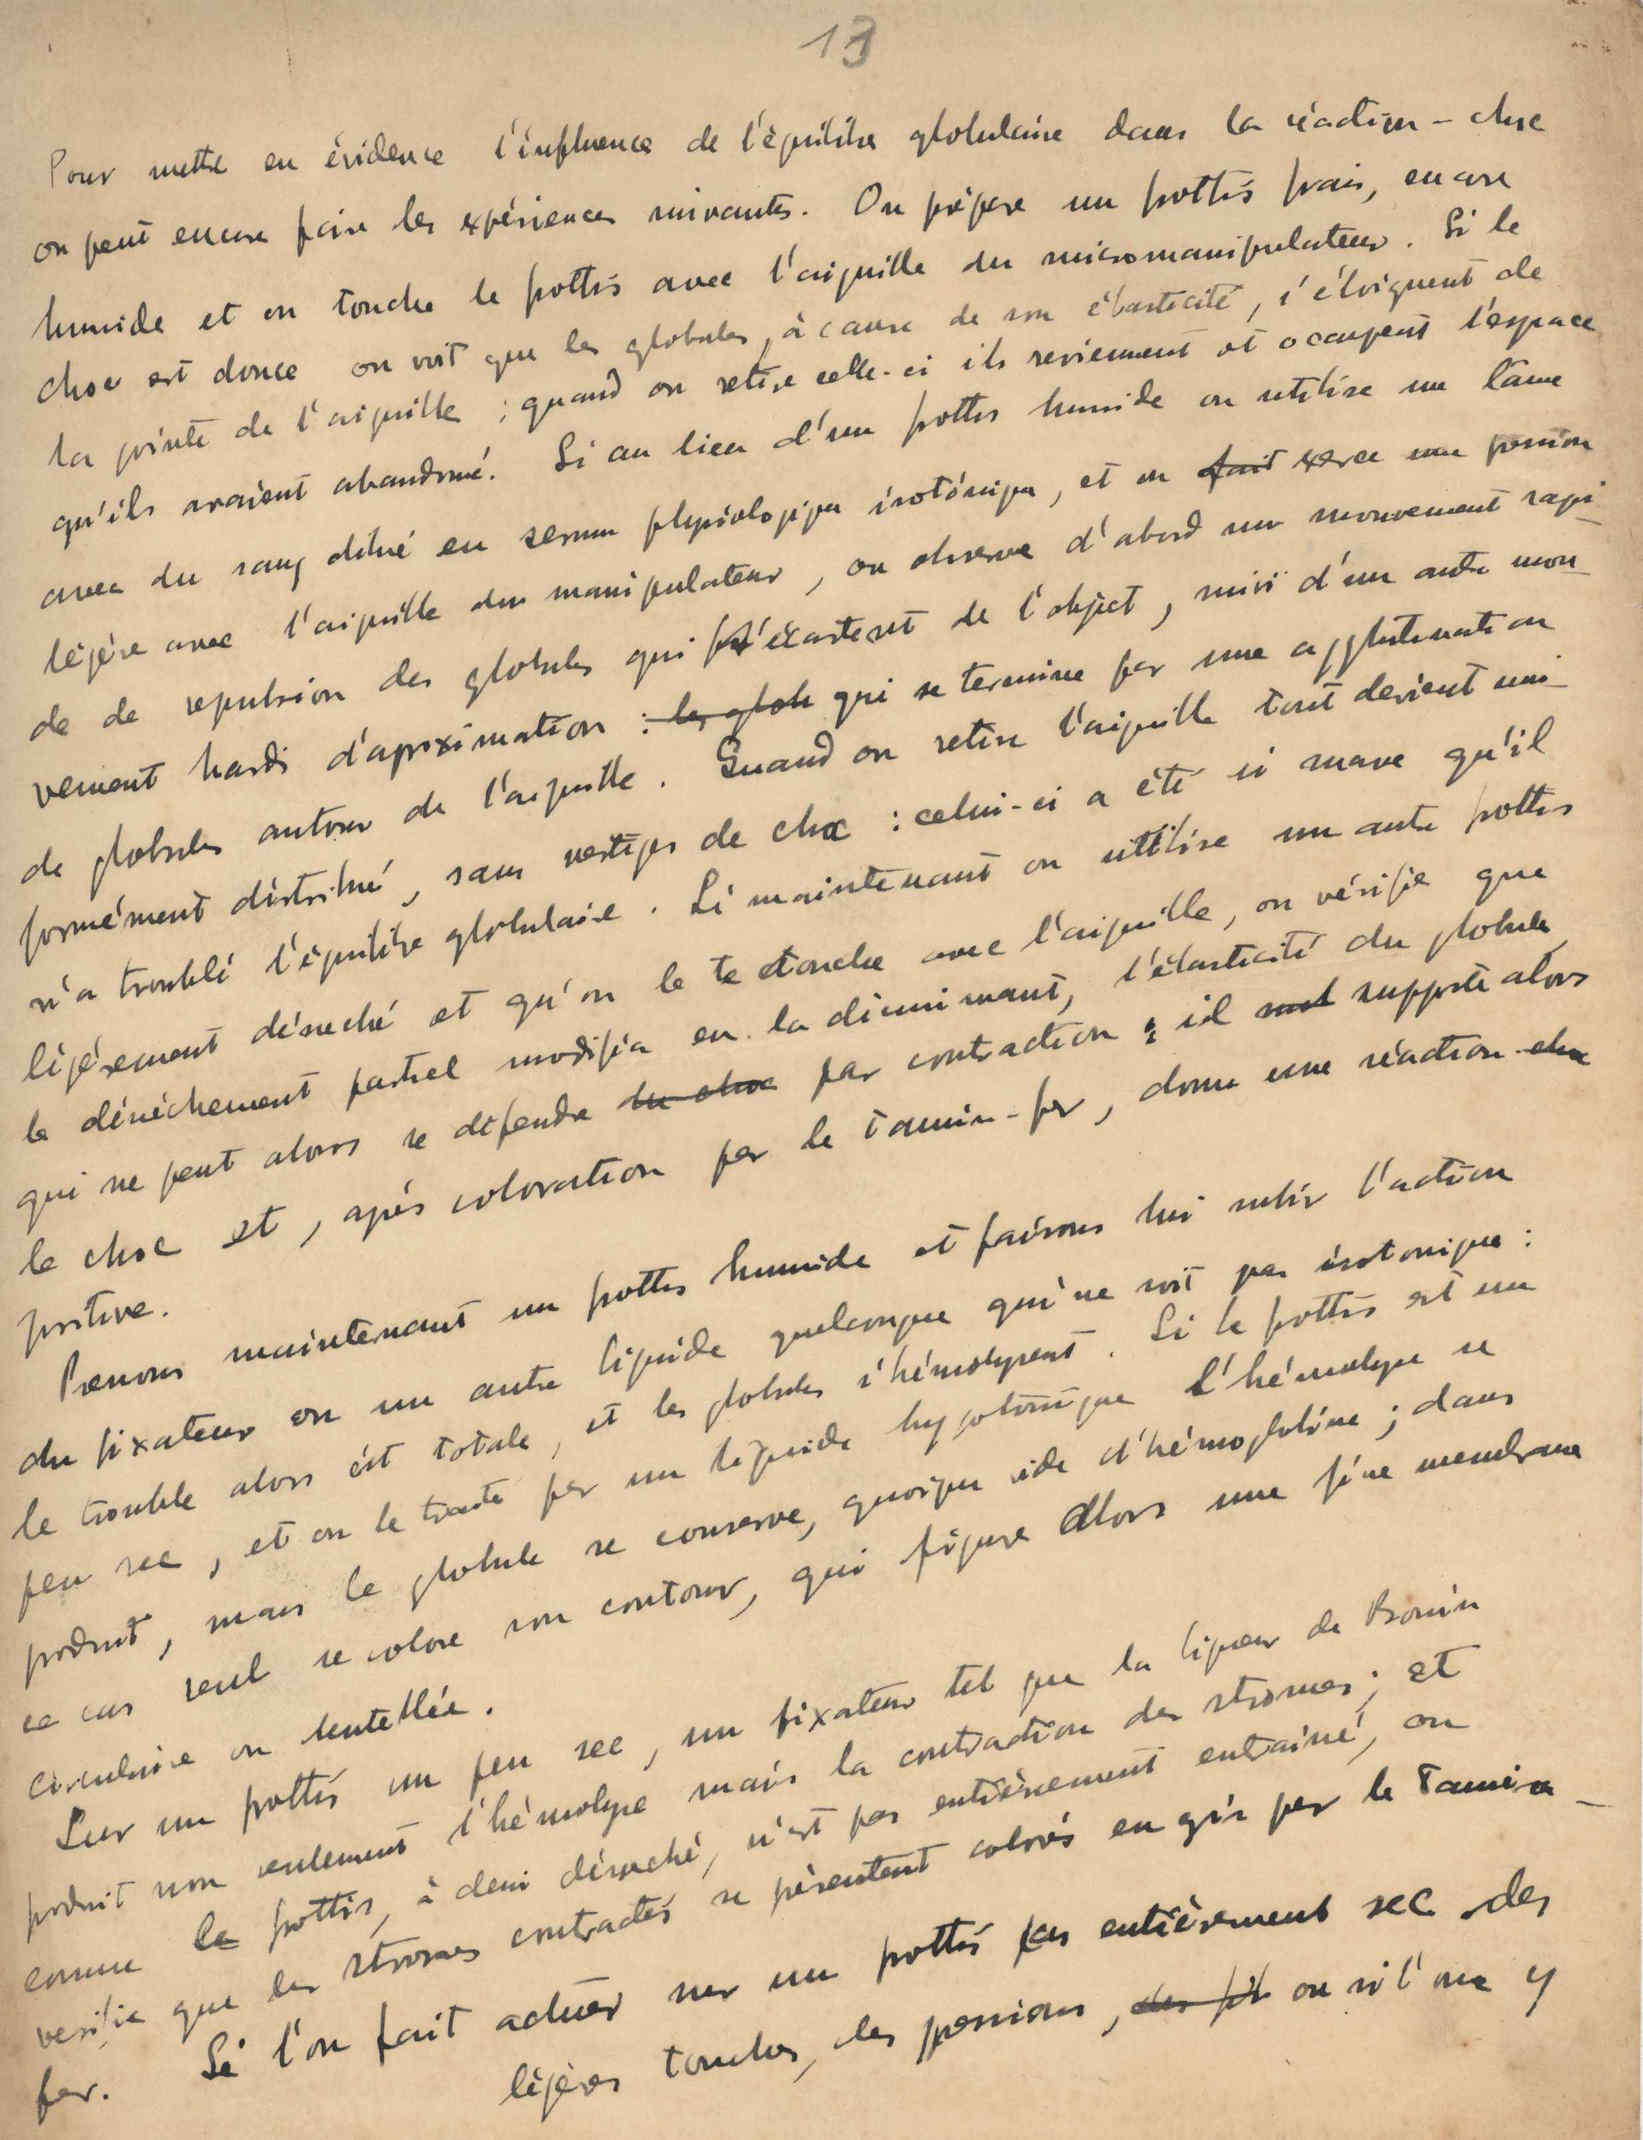 13
Pour mettre en évidence l'influence de l'équilibre globulaire dans la réaction-choc
on peut encore faire les expériences suivantes. On prépare un frottis frais, encore
humide et on touche le frottis avec l'aiguille du micromanipulateur. Si le
choc est douce on voit que les globules, à cause de son élasticité, s'éloignent de
la pointe de l'aiguille ; quand on retire celle-ci ils reviennent et occupent l'espace
qu'ils avaient abandonné. Si au lieu d'un frottis humide on utilise une lame
avec du sang dilué en serum physiologique isotónique, et on fait exerce une pression
légère avec l'aiguille du manipulateur, on observe d'abord un mouvement rapi-
de de repulsion des globules qui s'écartent de l'object, suivi d'un autre mou-
vement hardi d'aproximation : les glob qui se termine par une agglutination
de globules autour de l'aiguille. Quand on retire l'aiguille tout devient uni-
formément distribué, sans vestiges de choc : celui-ci a été si suave qu'il
n'a troublé l'équilibre globulaire. Si maintenant on utilise un autre frottis
légèrement désseché et qu'on le te touche avec l'aiguille, on vérifie que
le désséchement partiel modifia en la diminuant, l'élasticité du globule
qui ne peut alors se défendre du choc par contraction ; il mal supporte alors
le choc et, après coloration par le tannin-fer, donne une réaction choc
positive.
Prenons maintenant un frottis humide et faisons lui subir l'action
du fixateur ou un autre liquide quelconque qui ne soit pas isotonique :
le trouble alors est totale, et les globules s'hémolysent. Si le frottis est un
peu sec, et on le traite par un liquide hypotonique l'hémolyse se
produit, mais le globule se conserve, quoique vide d'hémoglobine ; dans
ce cas seul se colore son contour, qui figure alors une fine membrane
circulaire ou dentellée.
Sur un frottis un peu sec, un fixateur tel que la liqueur de Bouin
produit non seulement l'hémolyse mais la contraction des stromes ; et
comme le frottis, à demi désseché, n'est pas entièrement entrainé, on
verifie que les stromes contractés se présentent colorés en gris par le tannin-
fer. Si l'on fait actuer sur un frottis pas entièrement sec des
légères touches, des pressions, ou si l'on y